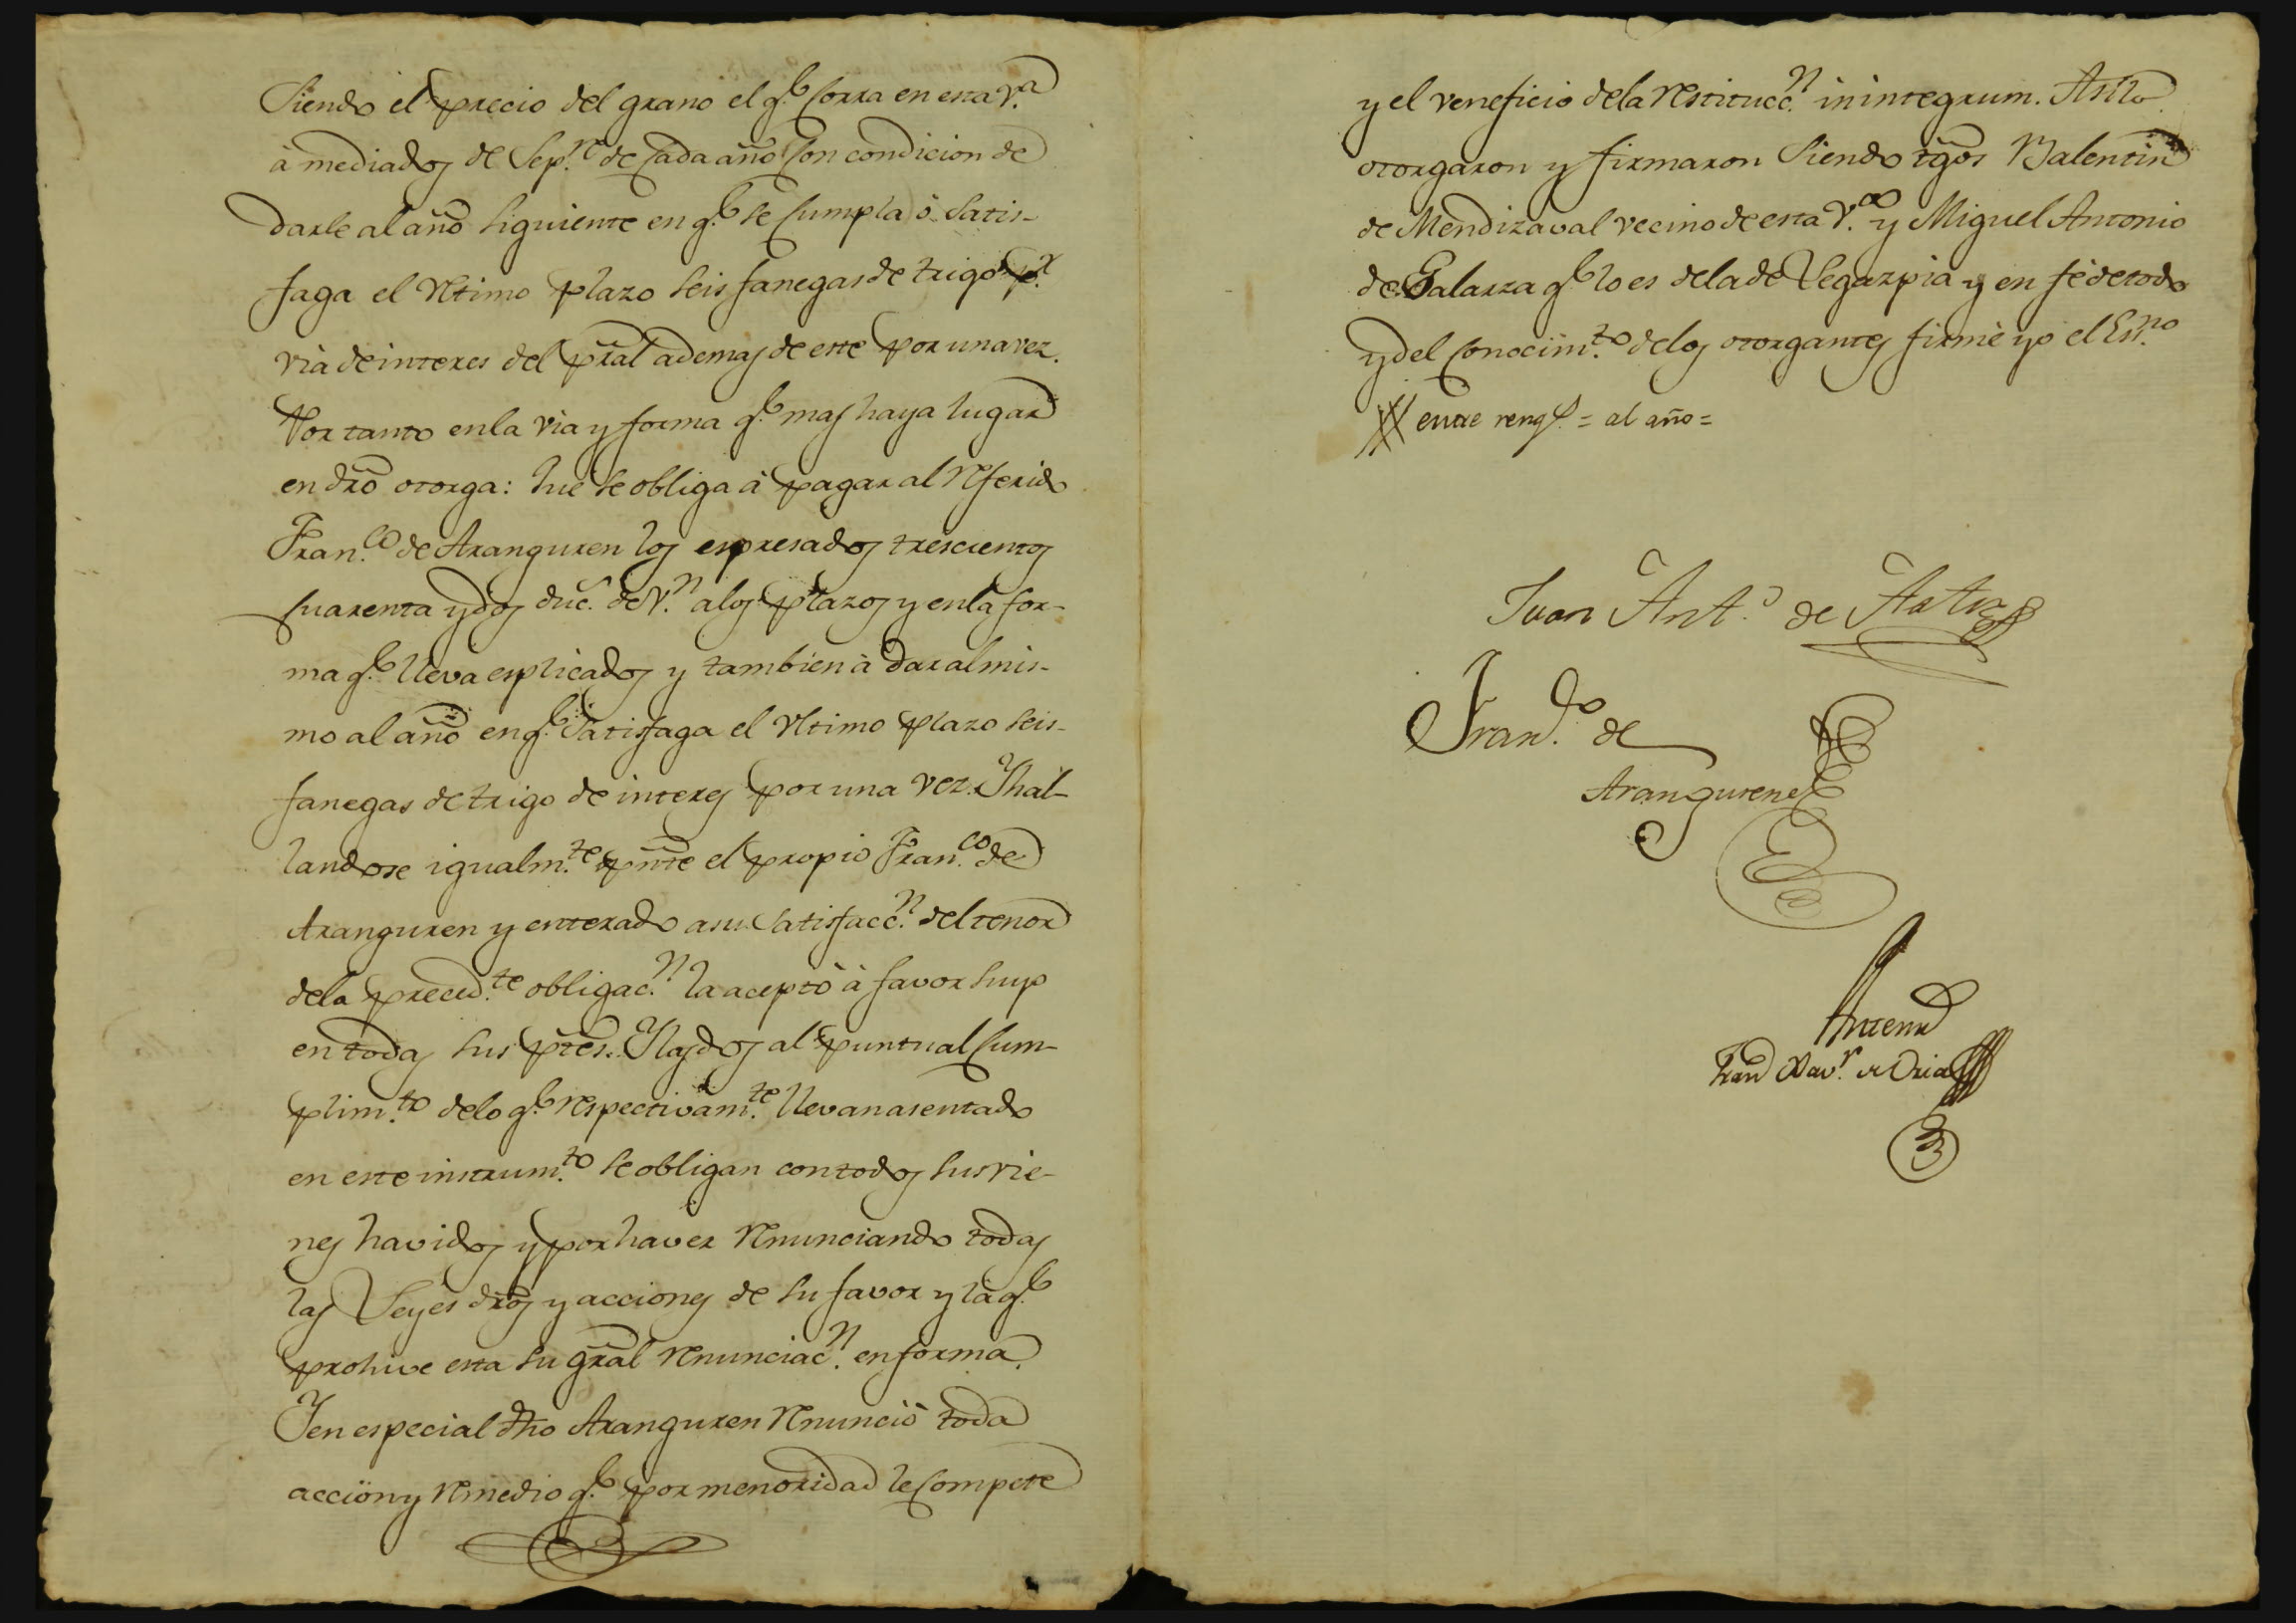 Siendo el precio del grano el q.e Corra en esta V.a
à mediados de Sep.re de Cada año Con condicion de
darle al año Siguiente en q.e Se Cumpla ò Satis-
faga el Ultimo plazo Seis fanegas de trigo p.r
vià de interes del pral ademas de este por una vez.
Por tanto en la via y forma q.e mas haya lugar
en dro otorga: Que Se obliga à pagar al Referido
Fran.co de Aranguren los espresados trescientos
Cuarenta y dos duc.s de V.n a los plazos y en la for-
ma q.e lleva esplicados y tambien à dar al mis-
mo al año en q.e Satisfaga el Ultimo plazo Seis
fanegas de trigo de interes por una vez. Y hal-
landose igualm.te pnte el propio Fran.co de
Aranguren y enterado a su Satisfacc.n del tenor
de la preced.te obligac.n la aceptò à favor Suyo
en todas Sus ptes. Y los dos al puntual Cum-
plim.to de lo q.e respectivam.te llevan asentado
en este instrum.to Se obligan con todos Sus vie-
nes havidos y por haver Renunciando todas
las Leyes dros y acciones de Su favor y la q.e
prohive esta Su gral Renunciac.n en forma.
Y en especial dho Aranguren Renunciò toda
accion y Remedio q.e por menoridad le Compete
y el veneficio de la restitucc.n in integrum. Asi lo
otorgaron y firmaron Siendo tgos Balentin
de Mendizaval vecino de esta V.a y Miguel Antonio
de Galarza q.e lo es de la de Legazpia y en fé de todo
y del Conocim.to de los otorgantes firmè yo el Ess.no
entre reng.s = al año =
Juan Ant.o de
Fran.co de
Aranguren
Antemi
Fran Xav.r de Oria